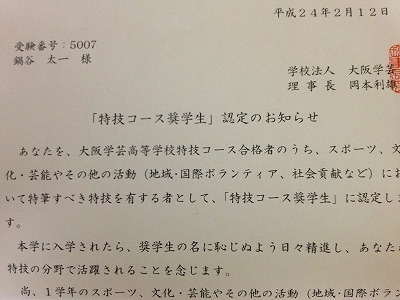 平成24年2月12日
受験番号：5007
鍋谷 太一 様
学校法人 大阪学芸
理事長 岡本利雄
「特技コース奨学生」認定のお知らせ
あなたを、大阪学芸高等学校特技コース合格者のうち、スポーツ、文
化・芸能やその他の活動（地域・国際ボランティア、社会貢献など）にお
いて特筆すべき特技を有する者として、「特技コース奨学生」に認定しま
す。
本学に入学されたら、奨学生の名に恥じぬよう日々精進し、あなた
特技の分野で活躍されることを念じます。
尚、1学年のスポーツ、文化・芸能やその他の活動（地域・国際ボ